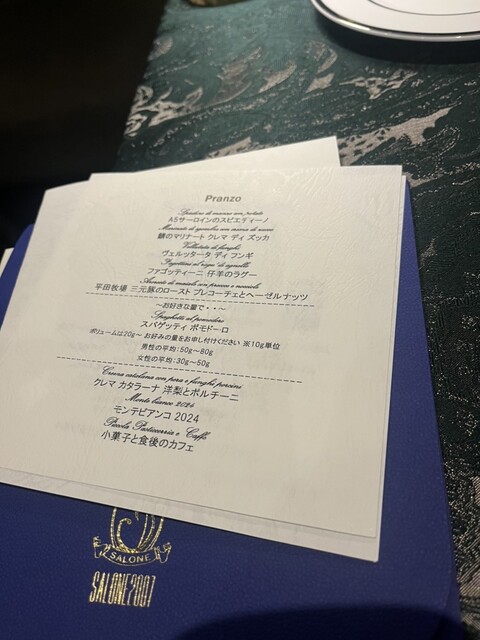 Pranzo
A5サーロインのスピエディーノ
鯖のマリナート クレマ ディ ズッカ
Vellutata di funghi
ヴェルッタータ ディ フンギ
ファゴッティーニ 仔羊のラグー
平田牧場 三元豚のロースト プレコーチェとヘーゼルナッツ
〜お好きな量で・・〜
Spaghetti al pomodoro
スパゲッティ ポモドーロ
ボリュームは70g〜 お好みの量をお申し付けください ※10g単位
男性の平均:50g〜80g
女性の平均:30g〜50g
Crema catalana con pera e funghi porcini
クレマ カタラーナ 洋梨とポルチーニ
Monte bianco 2024
モンテビアンコ 2024
Piccola Pasticceria e Caffè
小菓子と食後のカフェ
SALONE
SALONE2007